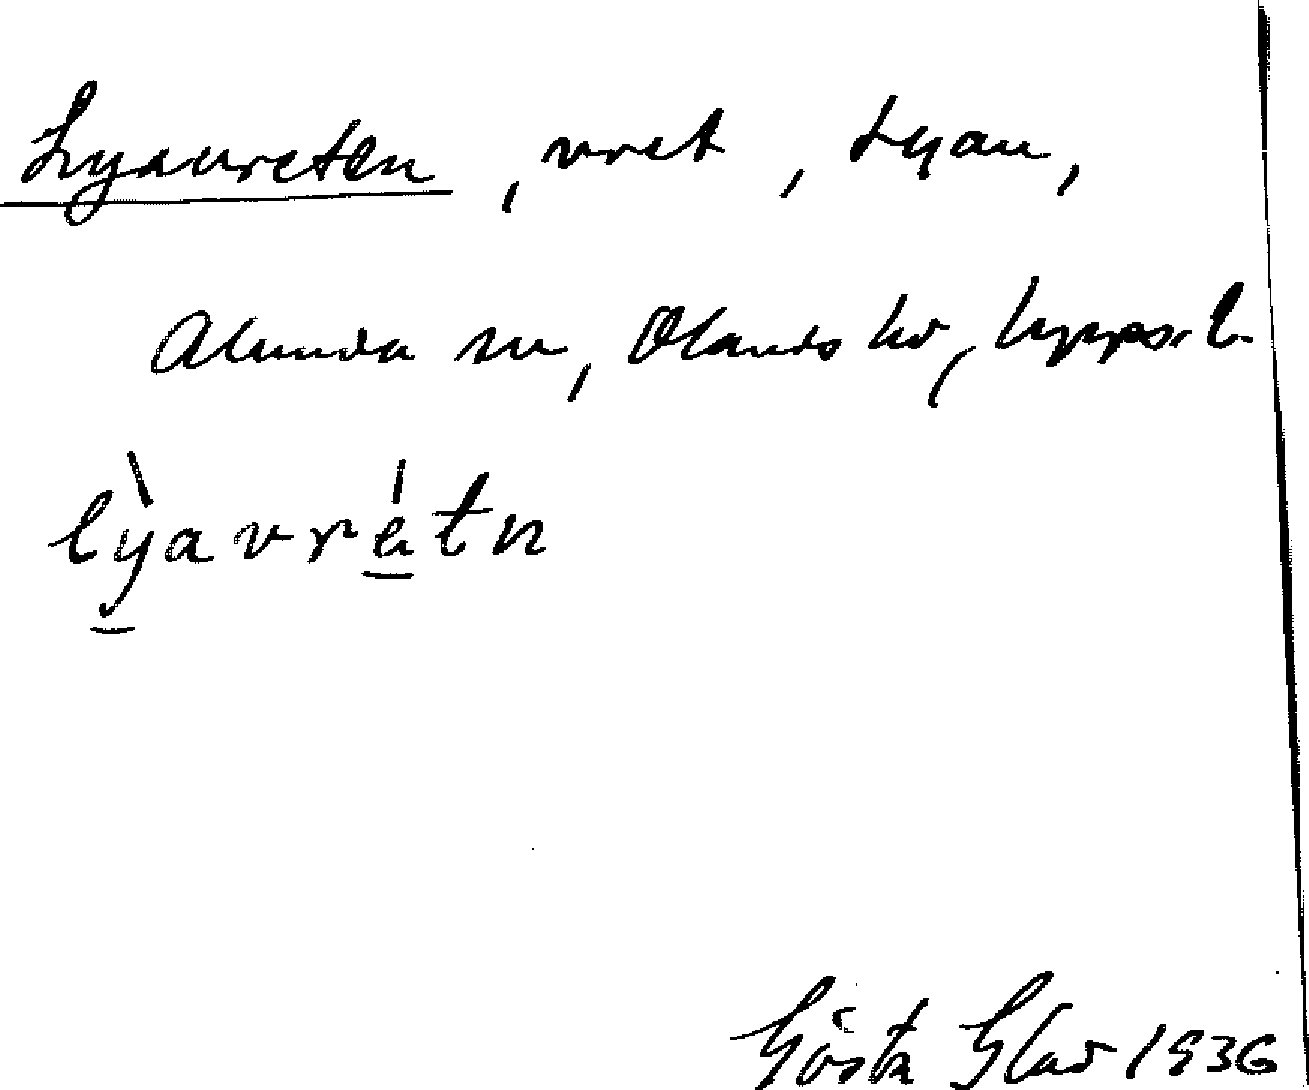 Lyavreten, vret, Lyan,
Alunda sn, Olands hd, Uppsala l.
lỳavrétn
Gösta Glad 1936